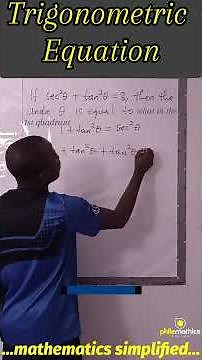 Trigonometric
Equation
If sec²θ + tan²θ = 3, then the
angle θ is equal to what in the
1st quadrant
1 + tan²θ = sec²θ
+ tan²θ + tan²θ
philemathics
...mathematics simplified...